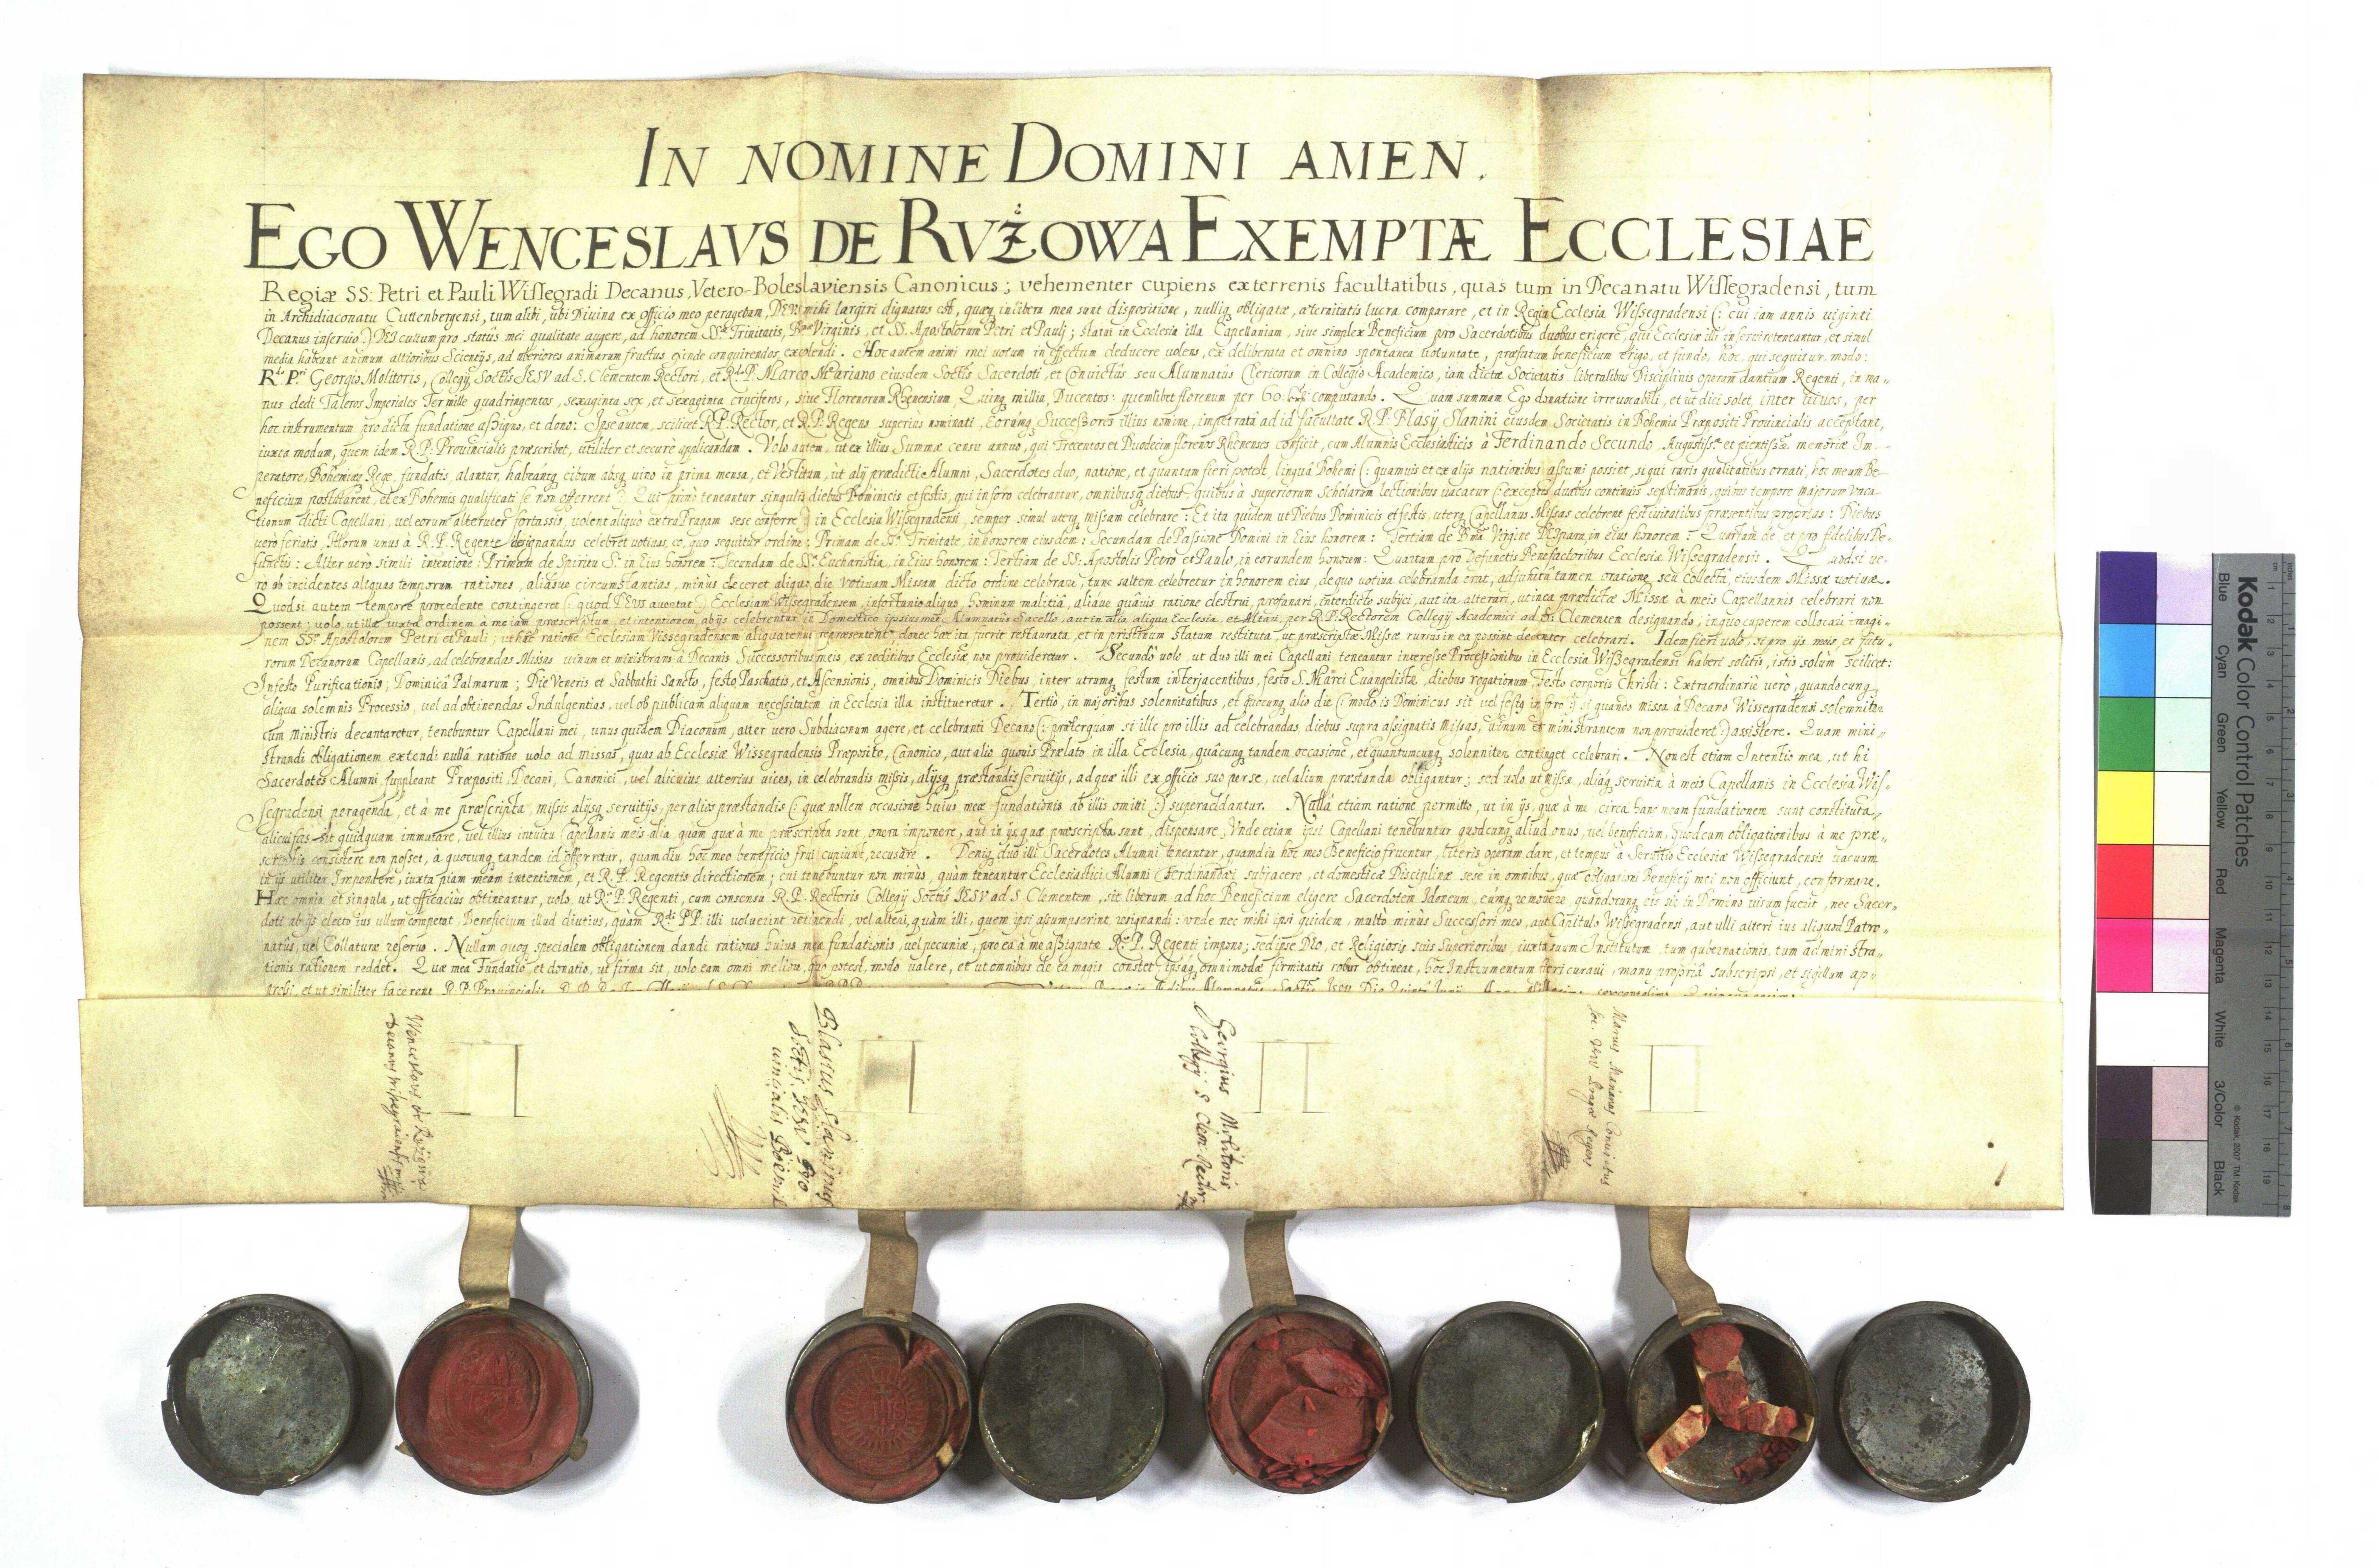 IN NOMINE DOMINI AMEN.
EGO WENCESLAVS DE RVŻOWA EXEMPTÆ ECCLESIAE
Regiæ SS: Petri et Pauli Wissegradi Decanus, Vetero-Boleslaviensis Canonicus; vehementer cupiens ex terrenis facultatibus, quas tum in Decanatu Wissegradensi, tum
in Archidiaconatu Cuttenbergensi, tum alibi, ubi Divina ex officio meo peragebam, DEVS mihi largiri dignatus est, quæq in libera mea sunt dispositione, nulliq obligatæ, æternitatis lucra comparare, et in Regia Ecclesia Wissegradensi (: cui iam annis uiginti
Decanus inseruio :) DEI cultum pro statûs mei qualitate augere, ad honorem SS. Trinitatis, B. Virginis, et SS. Apostolorum Petri et Pauli; statui in Ecclesia illa Capellaniam, siue simplex Beneficium pro Sacerdotibus duobus erigere, qui Ecclesiæ illi inseruire teneantur, et simul
media habeant animum altioribus Scientijs, ad uberiores animarum fructus exinde conquirendos, excolendi. Hoc autem animi mei uotum in effectum deducere volens, ex deliberata et omnino spontanea uoluntate, præfatum beneficium erigo, et fundo, hoc, qui sequitur, modo:
R. P. Georgio Molitoris, Collegij Soctis JESV ad S. Clementem Rectori, et R. P. Marco Mariano eiusdem Soctis Sacerdoti, et Convictûs seu Alumnatûs Clericorum in Collegio Academico, iam dictæ Societatis liberalibus Disciplinis operam dantium Regenti, in ma-
nus dedi Taleros Imperiales Ter mille quadringentos, sexaginta sex, et sexaginta cruciferos, siue Florenorum Rhenensium, Quinq millia, Ducentos: quemlibet florenum per 60 computando. Quam summam Ego donatione irreuocabili, et ut dici solet, inter uiuos, per
hoc instrumentum pro dicta fundatione assigno, et dono: Ipse autem, scilicet R. P. Rector, et R. P. Regens superius nominati, eorumq Successores illius nomine, impetratâ ad id facultate R. P. Blasij Slanini eiusdem Societatis in Bohemia Præpositi Prouincialis acceptant,
iuxta modum, quem idem R. P. Prouincialis præscribet, utiliter et securè applicandam. Volo autem, ut ex illius Summæ censu annuo, qui Trecentos et Duodecim florenos Rhenenses conficit, cum Alumnis Ecclesiasticis à Ferdinando Secundo Augustiss. et pientiss. memoriæ Im-
peratore, Bohemiæq Rege, fundatis, alantur, habeantq cibum absq uino in prima mensa, et Vestitum, ut alij prædicti Alumni, Sacerdotes duo, natione, et quantum fieri potest, linguâ Bohemi (: quamuis et ex alijs nationibus assumi possint, si qui raris qualitatibus ornati, hoc meum Be-
neficium postularent, et ex Bohemis qualificati se non offerrent :) Qui primò teneantur singulis diebus Dominicis et festis, qui in foro celebrantur, omnibusq diebus, quibus à superiorum Scholarum lectionibus uacatur (: exceptis duabus continuis septimanis, quibus tempore majorum Vaca-
tionum dicti Capellani, uel eorum alteruter fortassis, uolent aliquò extra Pragam sese conferre :) in Ecclesia Wissegradensi, semper simul uterq missam celebrare: Et ita quidem ut Diebus Dominicis et festis, uterq Capellanus Missas celebrent festiuitatibus præsentibus proprias: Diebus
uero feriatis, Illorum unus à R. P. Regente designandus celebret uotiuas, eo, quo sequitur ordine; Primam de SS. Trinitate, in honorem eiusdem: Secundam de Passione Domini in Eius honorem: Tertiam de B. Virgine Deipara, in eius honorem: Quartam de, et pro fidelibus De-
functis: Alter uerò simili intentione: Primam de Spiritu S. in Eius honorem: Secundam de SS. Eucharistia, in Eius honorem: Tertiam de SS: Apostolis Petro et Paulo, in eorundem honorem: Quartam pro Defunctis Benefactoribus Ecclesiæ Wissegradensis. Quodsi ue-
rò ob incidentes aliquas temporum rationes, aliasue circumstantias, minùs deceret aliquo die Votiuam Missam dicto ordine celebrari, tunc saltem celebretur in honorem eius, de quo uotiua celebranda erat, adjunctâ tamen oratione, seu collectâ, eiusdem Missæ uotiuæ.
Quodsi autem tempore procedente contingeret (: quod DEVS auertat :) Ecclesiam Wissegradensem, infortunio aliquo, hominum malitiâ, aliâue quâuis ratione destrui, profanari, interdicto subijci, aut ita alterari, ut in ea prædictæ Missæ à meis Capellannis celebrari non
possent; uolo, ut illæ iuxta ordinem à me iam præscriptum, et intentionem, ab ijs celebrentur in Domestico ipsiusmet Alumnatus Sacello, aut in alia aliqua Ecclesia, et Altari, per R. P. Rectorem Collegij Academici ad S. Clementem designando, in quo cuperem collocari imagi-
nem SS. Apostolorum Petri et Pauli; ut hac ratione Ecclesiam Vissegradensem aliquatenus repræsentent, donec hæc ita fuerit restaurata, et in pristinum statum restituta, ut præscriptæ Missæ rursus in ea possint decenter celebrari. Idem fieri uolo, si pro ijs meis, et futu-
rorum Decanorum Capellanis, ad celebrandas Missas uinum et ministrans à Decanis Successoribus meis, ex reditibus Ecclesiæ non prouideretur. Secundò uolo, ut duo illi mei Capellani teneantur interesse Processionibus in Ecclesia Wissegradensi haberi solitis, istis solùm scilicet:
In festo Purificationis, Dominicâ Palmarum; Die Veneris et Sabbathi Sancto, festo Paschatis, et Ascensionis, omnibus Dominicis Diebus, inter utrumq festum interjacentibus, festo S. Marci Euangelistæ, diebus rogationum, festo corporis Christi: Extraordinariè uerò, quandocunq
aliqua solemnis Processio, uel ad obtinendas Indulgentias, uel ob publicam aliquam necessitatem in Ecclesia illa institueretur. Tertiò, in majoribus solennitatibus, et quocunq alio die (: modò is Dominicus sit, uel festus in foro :) si quando missa à Decano Wissegradensi solemniter
cum ministris decantaretur, tenebuntur Capellani mei, unus quidem Diaconum, alter uero Subdiaconum agere, et celebranti Decano (: præterquam si ille pro illis ad celebrandas, diebus supra assignatis missas, uinum et ministrantem non prouideret :) assistere. Quam mini-
strandi obligationem extendi nullâ ratione uolo ad missas, quas ab Ecclesiæ Wissegradensis Præposito, Canonico, aut alio quouis Prælato in illa Ecclesia, quâcunq tandem occasione, et quantumcunq solenniter continget celebrari. Non est etiam Intentio mea, ut hi
Sacerdotes Alumni, suppleant Præpositi, Decani, Canonici, uel alicuius alterius uices, in celebrandis missis, alijsq præstandis seruitijs, ad quæ illi ex officio suo per se, uel alium, præstanda obligantur; sed uolo ut missæ, aliaq seruitia à meis Capellanis in Ecclesia Wis-
segradensi peragenda, et à me præscripta, missis alijsq seruitijs, per alios præstandis (: quæ nollem occasione huius meæ fundationis ab illis omitti :) superaddantur. Nullâ etiam ratione permitto, ut in ijs, quæ à me circa hanc meam fundationem sunt constituta,
alicui fas sit quidquam immutare, uel illius intuitu Capellanis meis alia, quàm quæ à me præscripta sunt, onera imponere, aut in ijs quæ præscripta sunt, dispensare; Vnde etiam ipsi Capellani tenebuntur quodcunq aliud onus, uel beneficium, quod cum obligationibus à me præ-
scriptis consistere non posset, à quocunq tandem id offerretur, quamdiu hoc meo beneficio frui cupiunt, recusare. Deniq duo illi Sacerdotes Alumni teneantur, quamdiu hoc meo Beneficio fruentur, literis operam dare, et tempus à Seruitio Ecclesiæ Wissegradensis uacuum
in ijs utiliter Impendere, iuxta piam meam intentionem, et R. P. Regentis directionem; cui tenebuntur non minùs, quàm teneantur Ecclesiastici Alumni Ferdinandæi subjacere, et domesticæ Disciplinæ sese in omnibus, quæ obligationi Beneficij mei non officiunt, conformare.
Hæc omnia et singula, ut efficaciùs obtineantur, uolo, ut R. P. Regenti, cum consensu R. P. Rectoris Collegij Soctis JESV ad S. Clementem, sit liberum ad hoc Beneficium eligere Sacerdotem Idoneum, eumq remouere, quandocunq eis sic in Domino uisum fuerit, nec Sacer-
doti ab ijs electo ius ullum competat, Beneficium illud diutius, quàm R. PP. illi uoluerint retinendi, vel alteri, quàm illi, quem ipsi assumpserint, resignandi: vnde nec mihi ipsi quidem, multò minùs Successori meo, aut Capitulo Wissegradensi, aut ulli alteri ius aliquod Patro-
natûs, uel Collaturæ reseruo. Nullam quoq specialem obligationem dandi rationes huius meæ fundationis, uel pecuniæ, pro ea à me assignatæ R. P. Regenti impono; sed ipse Deo, et Religiosis suis Superioribus, iuxta suum Institutum, tum gubernationis, tum administra-
tionis rationem reddet. Quæ mea Fundatio, et donatio, ut firma sit, uolo eam omni meliori, quo potest, modo ualere, et ut omnibus de ea magis constet, ipsaq omnimodæ firmitatis robur obtineat, hoc Instrumentum fieri curaui, manu propriâ subscripsi, et sigillum ap-
Wenceslaus de Ružowa
Decanus Wissegradensis
Blasius Slaninus
Soctis JESV Pro
uincialis Boëmi
Georgius Molitoris
Collegij S Clem. Rector
Marcus Marianus Conuictus
Soc. JESV Pragæ Regens
IHS
Kodak Color Control Patches
Blue Cyan Green Yellow Red Magenta White 3/Color Black
© Kodak, 2007 TM: Kodak
inches
cm
1 2 3 4 5 6 7 8 9 10 11 12 13 14 15 16 17 18 19
1 2 3 4 5 6 7 8